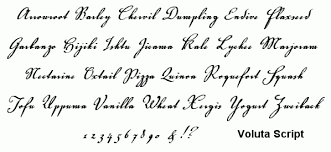 Arrowroot Barley Chervil Dumpling Endive Flaxseed
Garbanzo Hijiki Ishtu Jicama Kale Lychee Marjoram
Nectarine Oxtail Pizza Quinoa Roquefort Squash
Tofu Uppuma Vanilla Wheat Xergis Yogurt Zweiback
1 2 3 4 5 6 7 8 9 0 & ! ?
Voluta Script